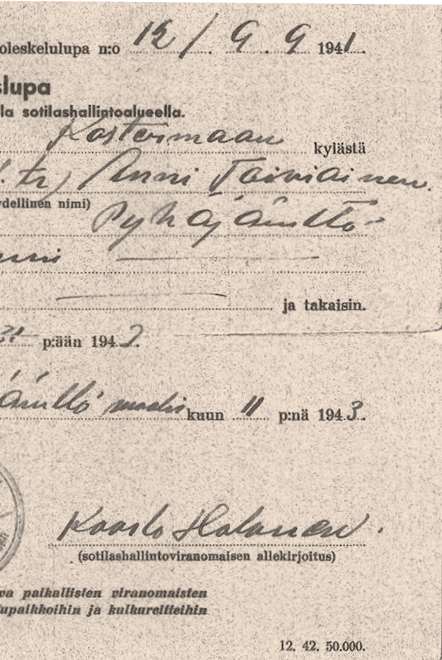 oleskelulupa n:o 12/ 9. 9 1941.
lupa
la sotilashallintoalueella.
kylästä
Anni Toiviainen.
ydellinen nimi)
Pyhäjä
ja takaisin.
31 p:ään 1943.
kuun 11 p:nä 1943.
Kaarlo Halonen.
(sotilashallintoviranomaisen allekirjoitus)
va paikallisten viranomaisten
lupaikkoihin ja kulkureitteihin
12. 42. 50.000.